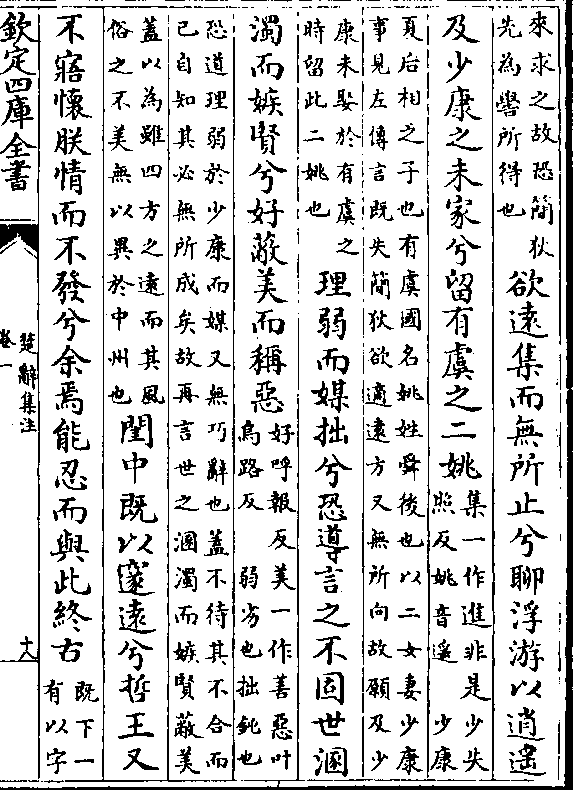 來求之故恐簡狄
先為嚳所得也
欲遠集而無所止兮聊浮游以逍遙
及少康之未家兮留有虞之二姚
集一作進非是少失
照反姚音遙　少康
夏后相之子也有虞國名姚姓舜後也以二女妻少康
事見左傳言既失簡狄欲適遠方又無所向故願及少
康未娶於有虞之
時留此二姚也
理弱而媒拙兮恐導言之不固世溷
濁而嫉賢兮好蔽美而稱惡
好呼報反美一作善惡叶
烏路反　弱劣也拙鈍也
恐道理弱於少康而媒又無巧辭也蓋不待其不合而
已自知其必無所成矣故再言世之溷濁而嫉賢蔽美
蓋以為雖四方之遠而其風
俗之不美無以異於中州也
閨中既以邃遠兮哲王又
不寤懷朕情而不發兮余焉能忍而與此終古
既下一
有以字
欽定四庫全書
楚辭集注
卷一
十八